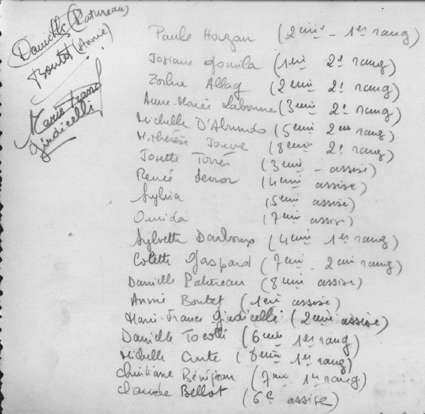 Danielle (Patureau)
Boutet (Annie)
Marie France
Giudicelli
Paule Horgan (2ème - 1er rang)
Josiane (1ère 2e rang)
(2ème 2e rang)
Anne-Marie Labonne (3ème 2e rang)
Michelle D'Abrundo (5ème 2ème rang)
M. Thérèse (8ème 2e rang)
Josette Torrès (3ème - assise)
Renée (4ème assise)
Sylvia (5ème assise)
Omida (7ème assise)
Sylvette Darboux (4ème 1er rang)
Colette Gaspard (7ème - 2ème rang)
Danielle Patureau (8ème assise)
Annie Boutet (1ère assise)
Marie-France Giudicelli (2ème assise)
Danielle Tocolli (6ème 1er rang)
Michelle (1er rang)
Christiane (7ème 1er rang)
Claudie Bellot (6e assise)